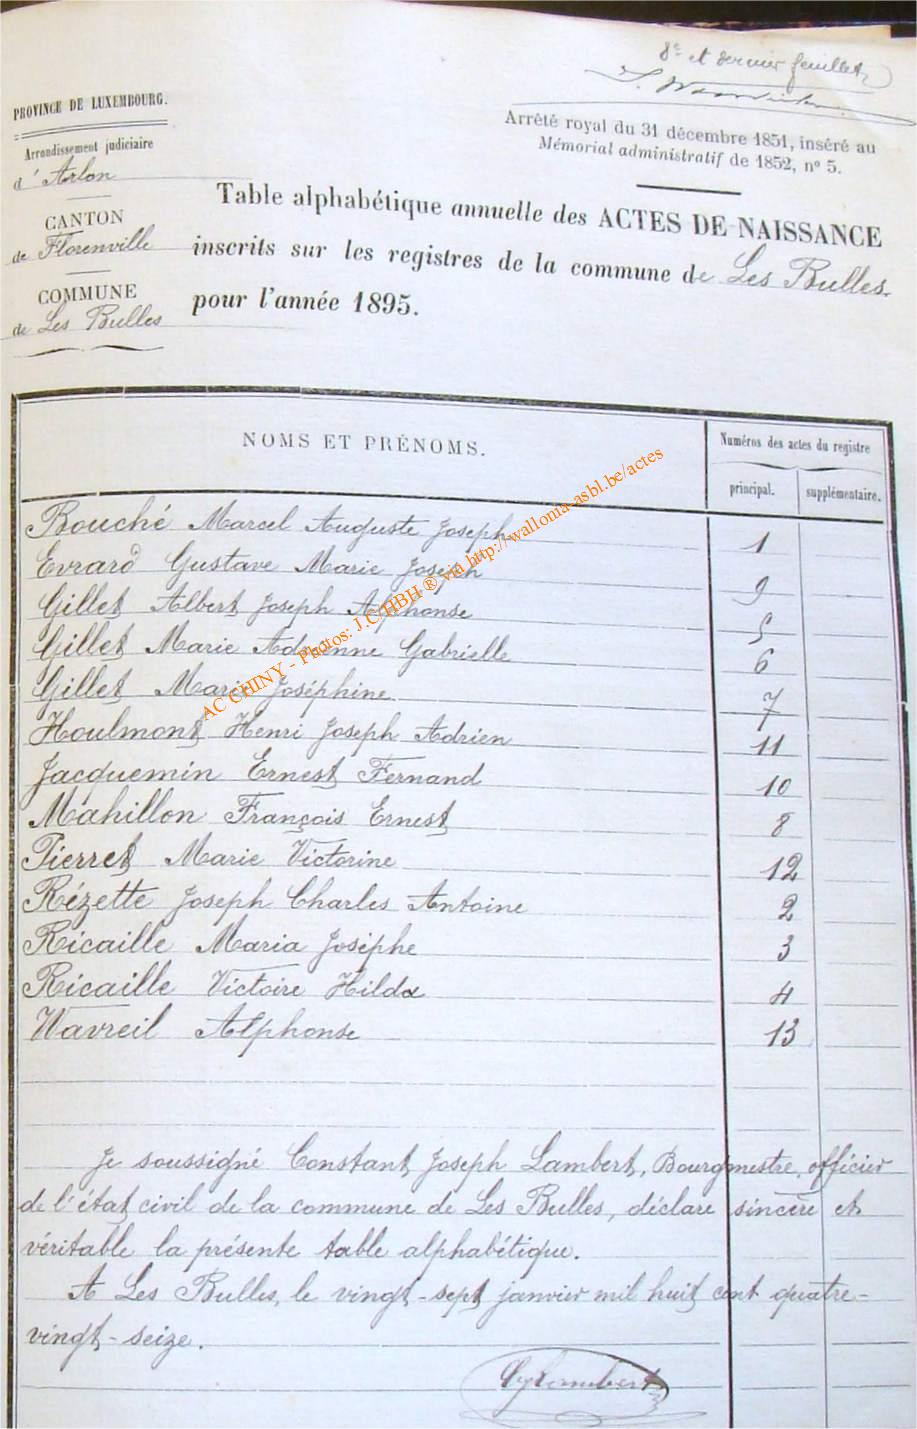 8e et dernier feuillet
PROVINCE DE LUXEMBOURG.
Arrêté royal du 31 décembre 1851, inséré au
Mémorial administratif de 1852, nº 5.
Arrondissement judiciaire
d'Arlon
CANTON
de Florenville
COMMUNE
de Les Bulles
Table alphabétique annuelle des ACTES DE NAISSANCE
inscrits sur les registres de la commune de Les Bulles
pour l'année 1895.
NOMS ET PRÉNOMS.
Numéros des actes du registre
principal.
supplémentaire.
Bouché Marcel Auguste Joseph 1
Evrard Gustave Marie Joseph 9
Gillet Albert Joseph Alphonse 5
Gillet Marie Adrienne Gabrielle 6
Gillet Marie Joséphine 7
Houlmont Henri Joseph Adrien 11
Jacquemin Ernest Fernand 10
Mahillon François Ernest 8
Pierret Marie Victorine 12
Rézette Joseph Charles Antoine 2
Ricaille Maria Josèphe 3
Ricaille Victoire Hilda 4
Wavreil Alphonse 13
Je soussigné Constant Joseph Lambert, Bourgmestre, officier
de l'état civil de la commune de Les Bulles, déclare sincère et
véritable la présente table alphabétique.
A Les Bulles, le vingt-sept janvier mil huit cent quatre-
vingt-seize.
CjLambert
AC CHINY - Photos: J.C HBH ® via http://wallonia-asbl.be/actes